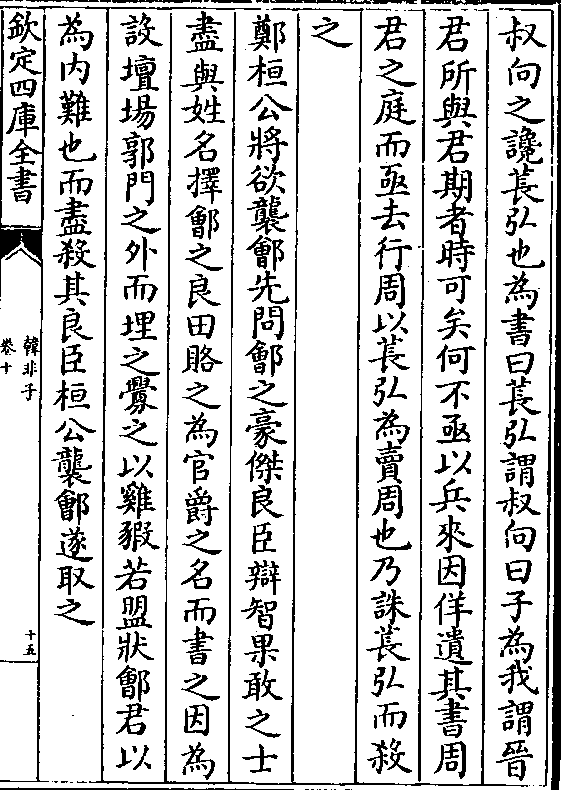 叔向之讒萇弘也為書曰萇弘謂叔向曰子為我謂晉
君所與君期者時可矣何不亟以兵來因佯遺其書周
君之庭而亟去行周以萇弘為賣周也乃誅萇弘而殺
之
鄭桓公將欲襲鄶先問鄶之豪傑良臣辯智果敢之士
盡與姓名擇鄶之良田賂之為官爵之名而書之因為
設壇場郭門之外而埋之釁之以雞豭若盟狀鄶君以
為内難也而盡殺其良臣桓公襲鄶遂取之
欽定四庫全書
韓非子
卷十
十五